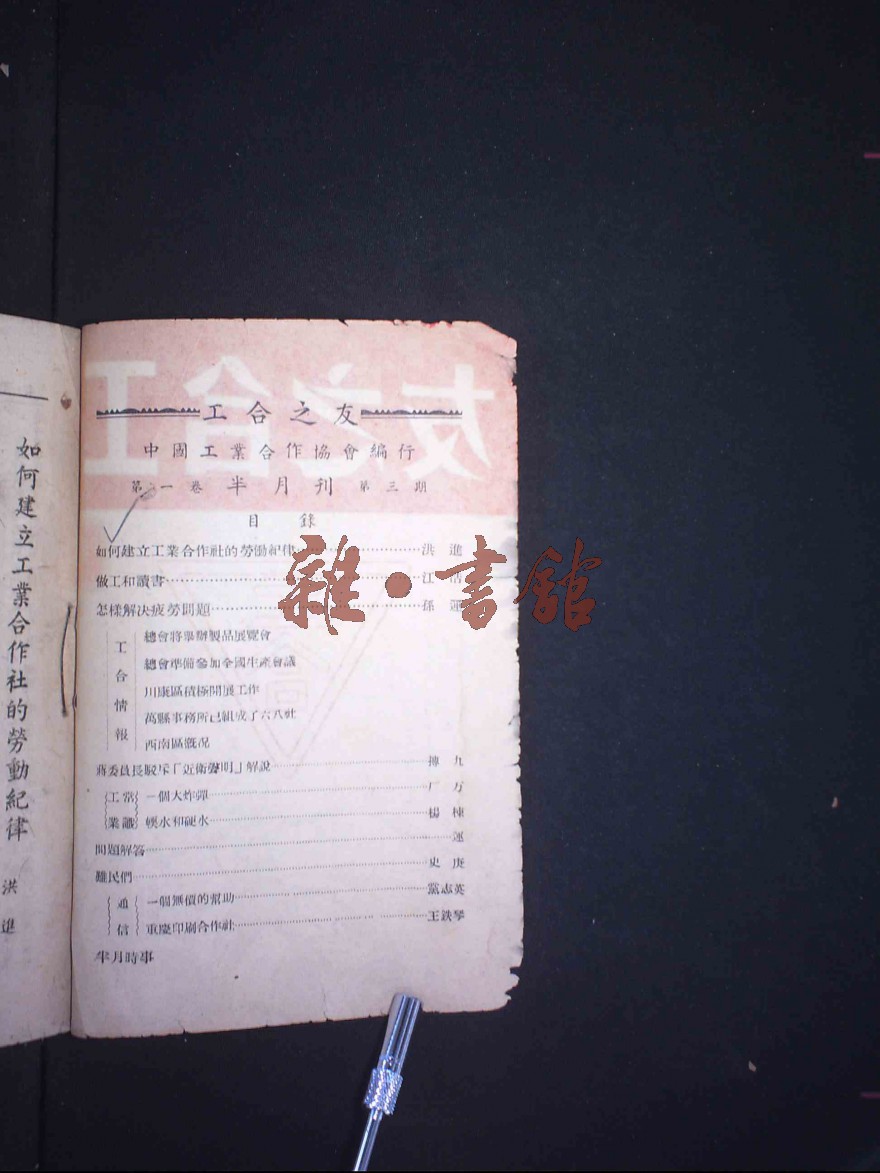 工合之友
中國工業合作協會編行
第一卷 半月刊 第三期
目錄
如何建立工業合作社的勞働紀律 洪進
做工和讀書 江
怎樣解決疲勞問題 孫運
工合情報
總會將舉辦製品展覽會
總會準備參加全國生產會議
川康區積極開展工作
萬縣事務所已組成了六八社
西南區概况
蔣委員長駁斥「近衛聲明」解說 摶九
工業常識
一個大炸彈 厂万
輭水和硬水 楊棟
問題解答 運
難民們 史庚
通信
一個無價的幫助 黨志英
重慶印刷合作社 王鉄琴
半月時事
如何建立工業合作社的勞動紀律
洪進
雜·書館